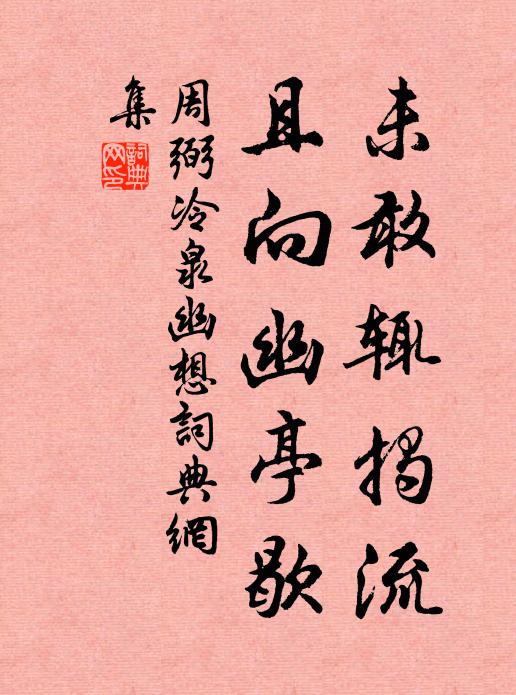 未敢辄揭流
且向幽亭歇
周弼冷泉幽想詞典網
集
詞典
网印